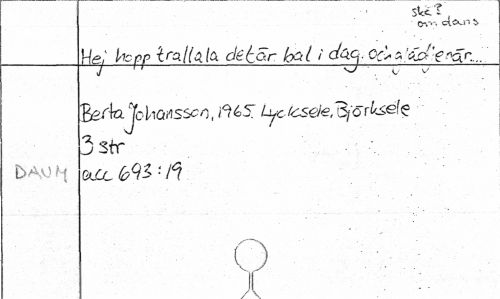 ske?
om dans
Hej hopp trallala det är bal i dag. och glädjen är...
Berta Johansson, 1965. Lycksele, Björksele
3 str
DAUM acc 693:19